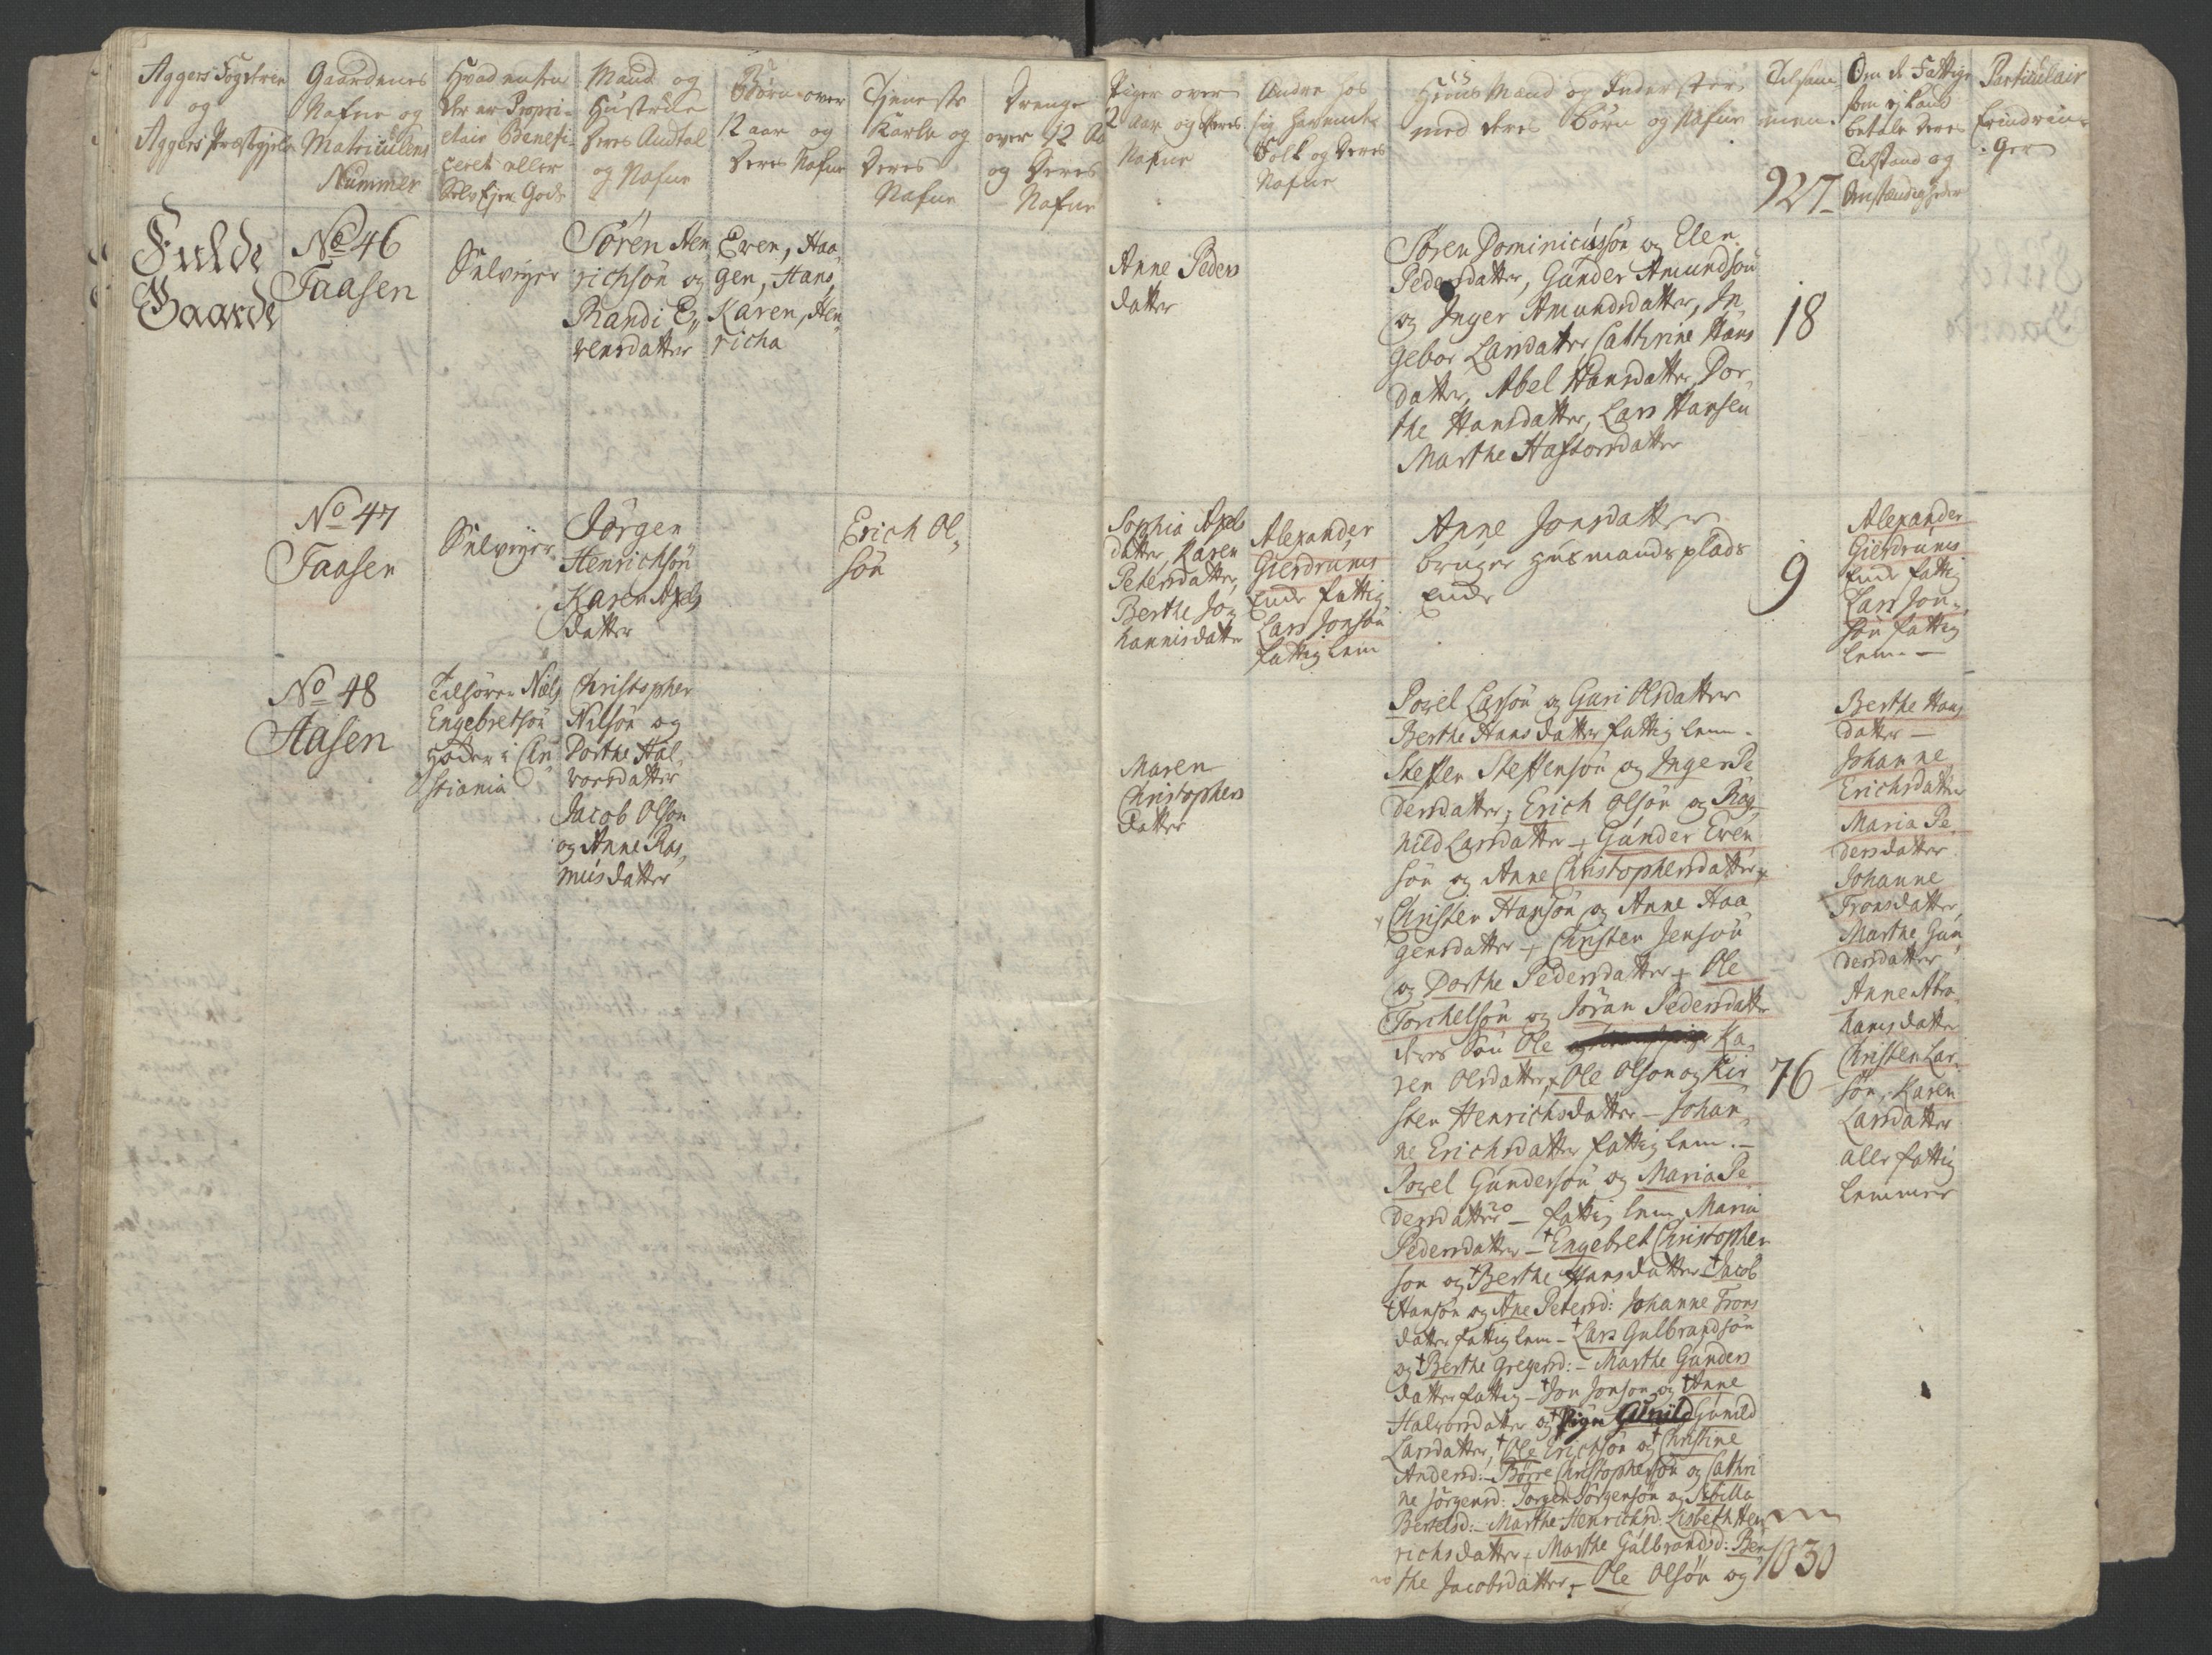 Aggers Fogderie
og
Aggers Præstegield
Gaardenes
Nafne og
Matriculens
Nummer
Hvad enten
der er Propri-
etair Benefi-
ceret eller
Selvejer Gods
Mand og
Hustrue
deres Andtal
og Nafne
Børn over
12 aar og
deres Nafne
Tieneste
Karle og
deres
Nafne
Drenge
over 12 Aar
og deres
Nafne
Piger over
12 Aar og deres
Nafne
Andre hos
sig havende
Folk og deres
Nafne
Huus Mænd og Inderster
med deres Børn og Nafne
Tilsam-
men.
927
Om de Fattige
som ej kand
betale deres
Tilstand og
Omstændigheder
Particulair
Erindrin-
ger
Fulde
Gaarde
No 46
Taasen
Selveyer
Sören Hen
richsön og
Randi E,,
vensdatter
Even, Haa,
gen, Hans,
Karen, Hen
richa
Anne Peders
datter
Sören Dominicusön og Elen
Pedersdatter, Gunder Amundsön
og Inger Amundsdatter, In
gebor Larsdatter, Cathrine Hans
datter, Abel Hansdatter, Dor,
the Hansdatter, Lars Hansen
Marthe Haftorsdatter
18
No 47
Taasen
Selveyer
Jörgen
Henrichsön
Karen Axels
datter
Erich Ol,,
sön
Sophia Axels
datter, Karen
Petersdatter,
Berthe Jo,,
hannisdatter
Alexander
Gierdrums
Enke fattig
Lars Jonsön
fattig lem
Anne Jonsdatter
bruger huusmandsplads
Enke
9
Alexander
Gierdrums
Enke fattig
Lars Jon,,
sön fattig
lem. —
No 48
Aasen
Tilhörer Niels
Engebretsön
i Chri
stiania
Christopher
Nilsön og
Dorthe Hal,
vorsdatter
Jacob Olsön
og Anne Ras,
musdatter
Maren
Christophers
datter
Powel Larsön og Guri Olsdatter
Berthe Hansdatter fattig lem.
Steffen Steffensön og Inger Pe
dersdatter, Erich Olsön og Rag,
nild Larsdatter - Gunder Even
sön og Anne Christophersdatter,
Christen Hansön og Anne Haa
gensdatter - Christen Jensön
og Dorthe Pedersdatter - Ole
Torchelsön og Jöran Pedersdatter
deres Sön Ole Ka,
ren Olsdatter, Ole Olsön og Kir
sten Henrichsdatter - Johan
ne Erichsdatter fattig lem. -
Powel Gundersön og Maria Pe
dersdatter - fattig lem Maria
Pedersdatter - Engebret Christopher
sön og Berthe Hansdatter Jacob
Hansön og Ane Petersd: Johanne Trons
datter fattig lem - Lars Gulbrandsön
og Berthe Gregersd: - Marthe Gunders
datter fattig - Jon Jonsön og Anne
Halvorsdatter og Pige Gunild Gunild
Larsdatter, Ole Erichsön og Christine
Andersd: - Börre Christophersön og Cathri
ne Jörgensd: Jörgen Jörgensön og Sebilla
Bertelsd: - Marthe Henrichsd: Lisbeth Hen
richsdatter, Marthe Gulbrandsd: Ber
the Jacobsdatter - Ole Olsön og
76
Berthe Hans
datter —
Johanne
Erichsdatter
Maria Pe
dersdatter
Johanne
Tronsdatter,
Marthe Gun
dersdatter
Anne Abra,
hamsdatter
Christen Lar,
sön, Karen
Larsdatter
alle fattig
lemmer
1030